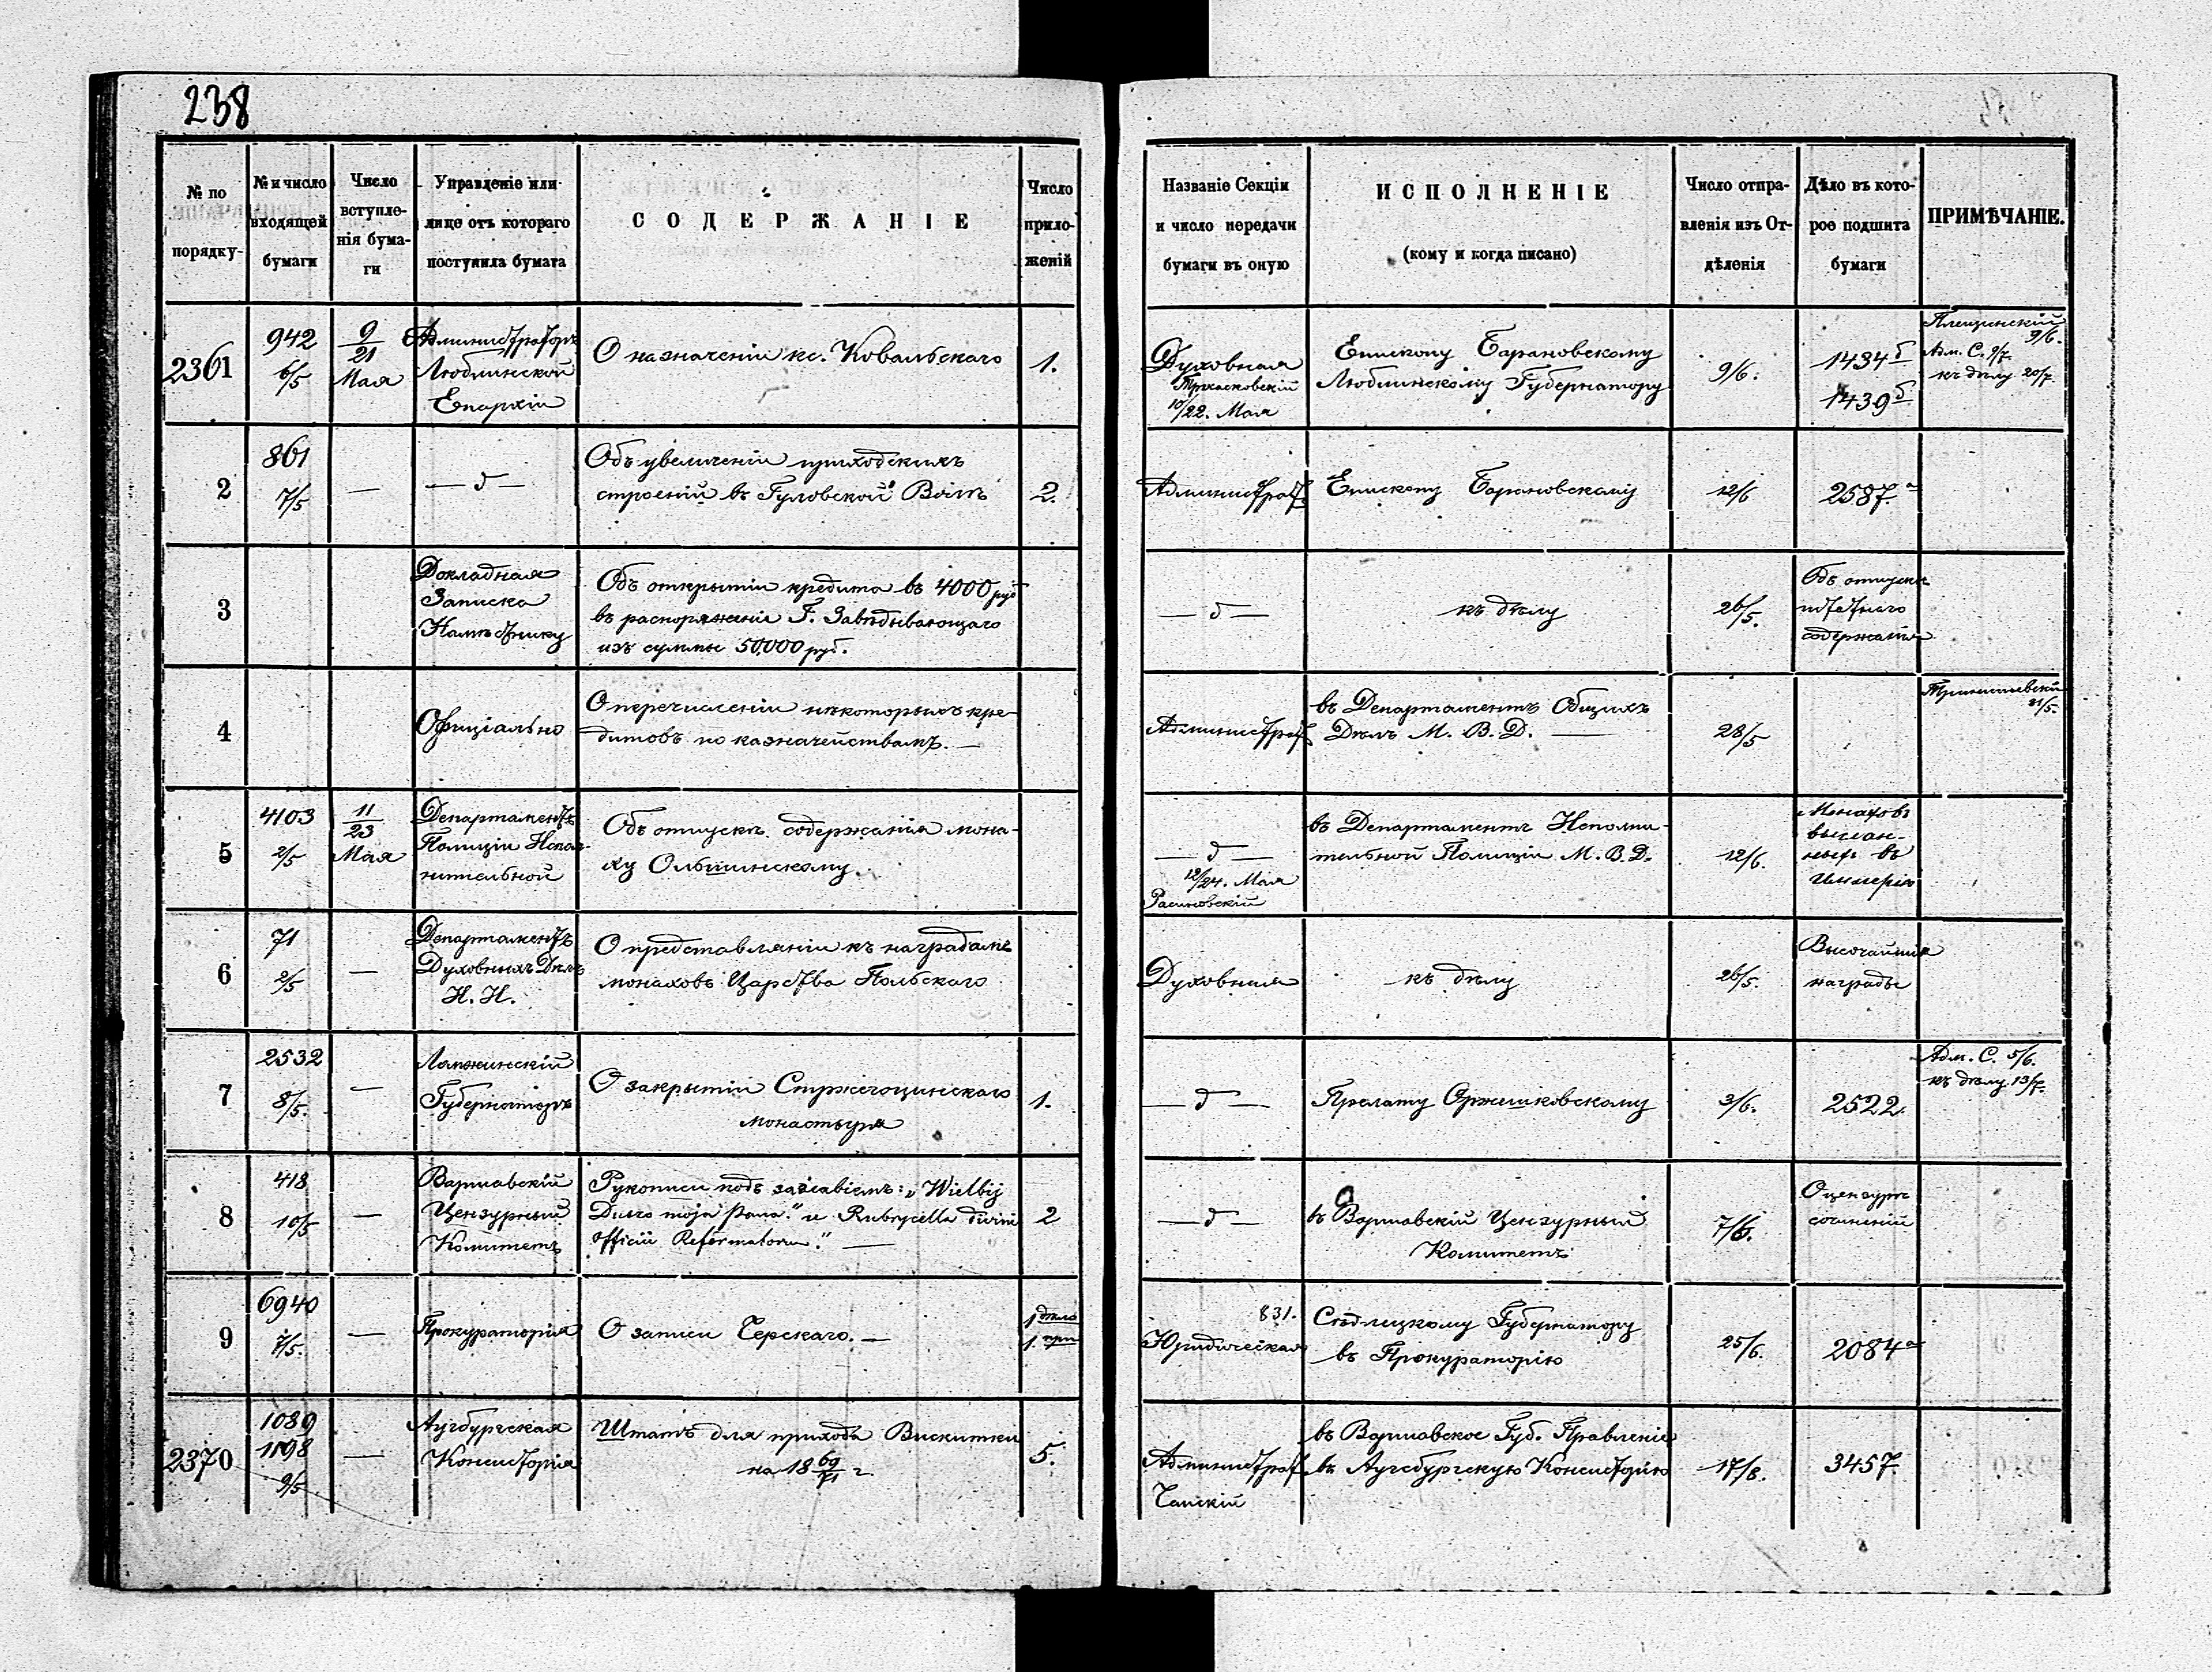 238
№ по порядку
№ и число входящей бумаги
Число вступле-нія бума-ги
Управленіе или лице отъ котораго поступила бумага
СОДЕРЖАНІЕ
Число прило-женій
Названіе Секціи и число передачи бумаги въ оную
ИСПОЛНЕНІЕ
(кому и когда писано)
Число отпра-вленія изъ От-дѣленія
Дѣло въ кото-рое подшита бумаги
ПРИМѢЧАНІЕ.
2361
942
6/5
9/21
Мая
Администраторъ
Люблинской
Епархіи
О назначеніи кс. Ковальскаго
1.
Духовная
10/22. Мая
Епископу Барановскому
Люблинскому Губернатору
9/6.
1434б
1439б
9/6.
Адм. С. 9/7.
къ дѣлу 20/7.
2
861
7/5
—
— д —
Объ увеличеніи приходскихъ
строеній въ Гуловской Волѣ
2.
Администрат.
Епископу Барановскому
12/6
2587.а
3
Докладная
Записка
Намѣстнику
Объ открытіи кредита въ 4000 руб
въ распоряженіи Г. Завѣдывающаго
изъ суммы 50,000 руб.
— д —
къ дѣлу
26/5.
Объ отпускѣ
штатнаго
содержанія
4
Офиціально
О перечисленіи нѣкоторыхъ кре-
дитовъ по казначействамъ. —
Администрат.
въ Департаментъ Общихъ
Дѣлъ М. В. Д. —
28/5
31/5.
5
4103
2/5
11/23
Мая
Департаментъ
Полиціи Испол-
нительной
Объ отпускѣ содержанія мона-
ху Ольшинскому.
— д —
12/24. Мая
въ Департаментъ Исполни-
тельной Полиціи М. В. Д.
12/6.
Монаховъ
выслан-
ныхъ въ
Имперію
6
71
2/5
—
Департаментъ
Духовныхъ Дѣлъ
И. И.
О представленіи къ наградамъ
монаховъ Царства Польскаго
Духовная
къ дѣлу
26/5.
Высочайшія
награды
7
2532
8/5.
—
Ломжинскій
Губернаторъ
О закрытіи Стржегоцинскаго
монастыря
1.
— д —
Прелату Оржешковскому
3/6.
2522.
Адм. С. 5/6.
къ дѣлу 13/7.
8
418
10/5
—
Варшавскій
Цензурный
Комитетъ
Рукописи подъ заглавіемъ: „Wielbij
Duszo moja Pana." и Rubrycella divini
officii Reformatorum." —
2
— д —
въ Варшавскій Цензурный
Комитетъ
7/6.
О цензурѣ
сочиненій
9
6940
7/5.
—
Прокураторія
О записи Черскаго. —
1 дѣло
1. при
831.
Юридическая
Сѣдлецкому Губернатору
въ Прокураторію
25/6.
2084а
2370
1089
1198
9/5
—
Аугсбургская
Консисторія
Штатъ для прихода Вискитки
на 18 69/71 г
5.
Администрат.
въ Варшавское Губ. Правленіе
въ Аугсбургскую Консисторію
17/8.
3457.